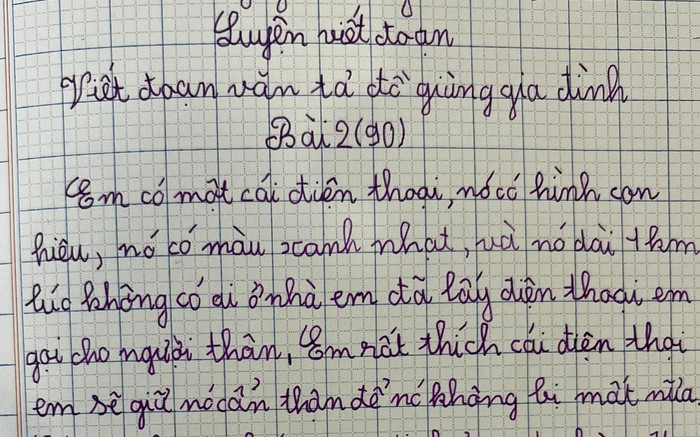 Luyện viết đoạn
Viết đoạn văn tả đồ giùng gia đình
Bài 2 (90)
Em có một cái điện thoại, nó có hình con
hiêu, nó có màu xanh nhạt, và nó dài 1km
lúc không có ai ở nhà em đã lấy điện thoại em
gọi cho người thân, Em rất thích cái điện thọi
em sẽ giữ nó cẩn thận để nó không bị mất nữa.